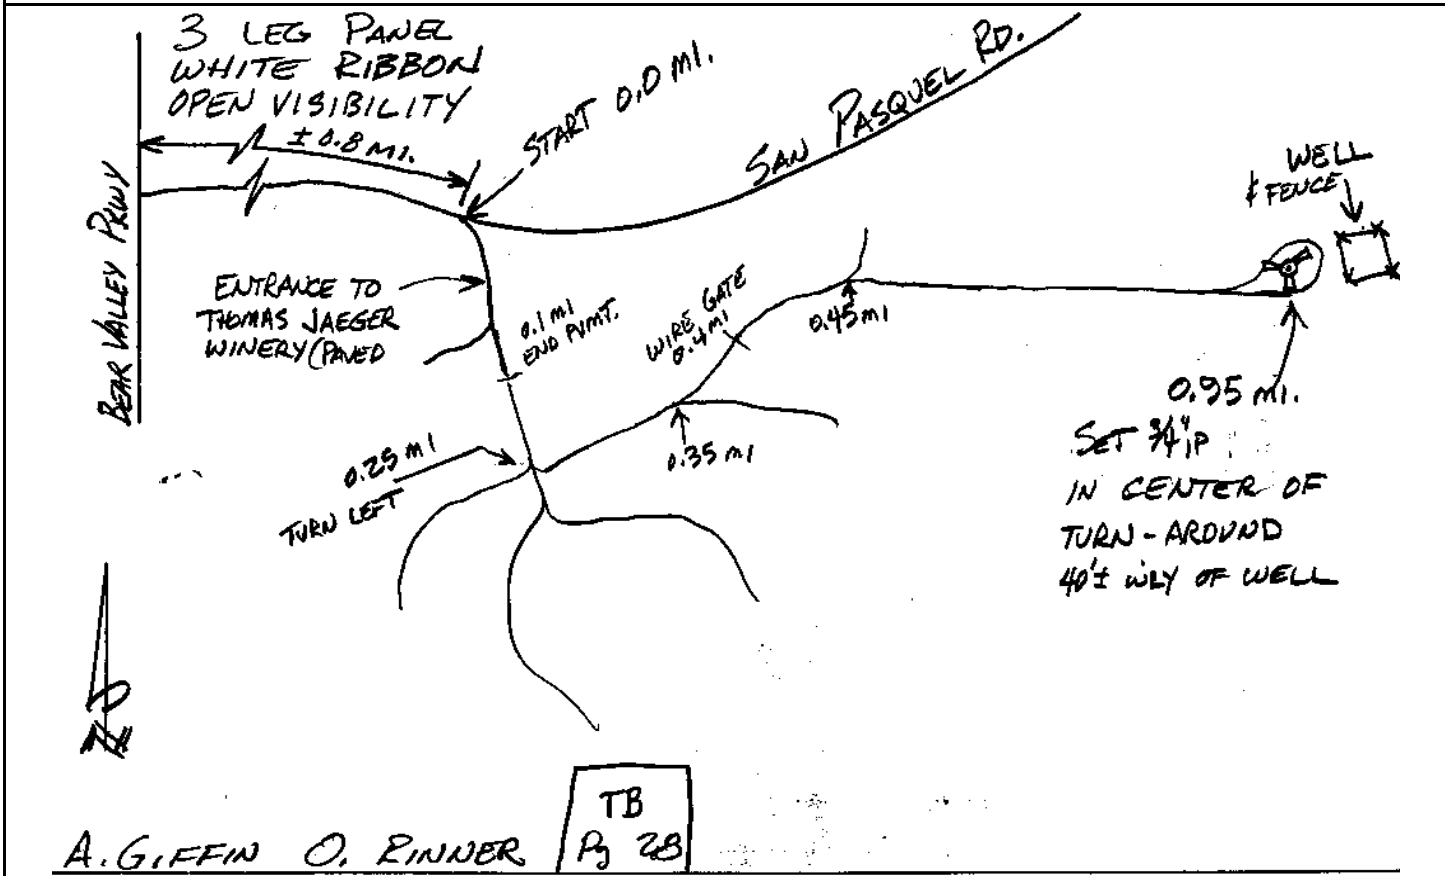 3 LEG PANEL
WHITE RIBBON
OPEN VISIBILITY
± 0.8 MI.
START 0.0 MI.
SAN PASQUEL RD.
BEAR VALLEY PKWY
WELL
& FENCE
ENTRANCE TO
THOMAS JAEGER
WINERY (PAVED
0.1 MI
END PVMT.
WIRE GATE
0.4 MI
0.45 MI
0.95 MI.
0.25 MI
TURN LEFT
0.35 MI
SET 3/4" IP
IN CENTER OF
TURN-AROUND
40'± W'LY OF WELL
N
TB
Pg 28
A. GIFFIN O. RINNER